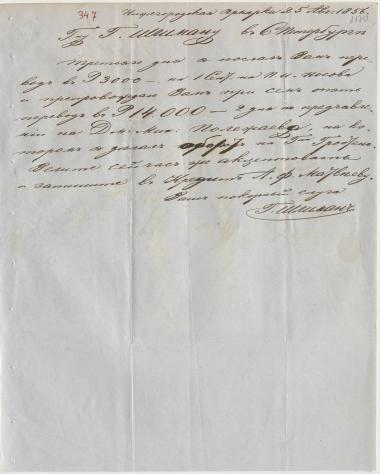 347
Нижегородская Ярмарка 25 Авг. 1856.
Гну Г. Шлиману въ С Петербургъ
Третьяго дня я послалъ Вамъ пере
водъ въ Р 3000 — на П. И. Носова
и препровождаю Вамъ при семъ опять
переводъ въ Р 14.000 — 2 дня по предъявле
нiи на Дм. Полежаева, на ко
торомъ я сделалъ на Гна
Велите сей часъ же акцептовать
и запишите въ Кредитъ А. Ф. Матвееву.
Вашъ покорный слуга
Г. Шлиманъ